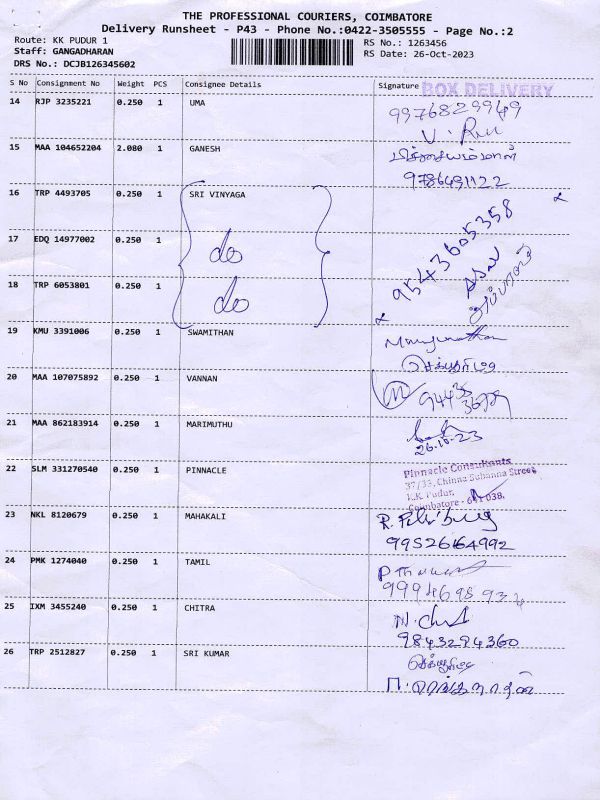 THE PROFESSIONAL COURIERS, COIMBATORE
Delivery Runsheet - P43 - Phone No.:0422-3505555 - Page No.:2
Route: KK PUDUR 1 RS No.: 1263456
Staff: GANGADHARAN RS Date: 26-Oct-2023
DRS No.: DCJB126345602
S No Consignment No Weight PCS Consignee Details Signature BOX DELIVERY
14 RJP 3235221 0.250 1 UMA 9976829949
V.
15 MAA 104652204 2.080 1 GANESH பிச்சையம்மாள்
9786491122
16 TRP 4493705 0.250 1 SRI VINYAGA
17 EDQ 14977002 0.250 1 do 9543605358
18 TRP 6053801 0.250 1 do
19 KMU 3391006 0.250 1 SWAMITHAN
20 MAA 107075892 0.250 1 VANNAN
21 MAA 862183914 0.250 1 MARIMUTHU
26.10.23
22 SLM 331270540 0.250 1 PINNACLE Pinnacle Consultants
37/33, Chinna Subanna Street
K.K. Pudur,
Coimbatore - 641 038.
23 NKL 8120679 0.250 1 MAHAKALI R.
9952664992
24 PMK 1274040 0.250 1 TAMIL P
9994698934
25 IXM 3455240 0.250 1 CHITRA N.
9843294360
26 TRP 2512827 0.250 1 SRI KUMAR